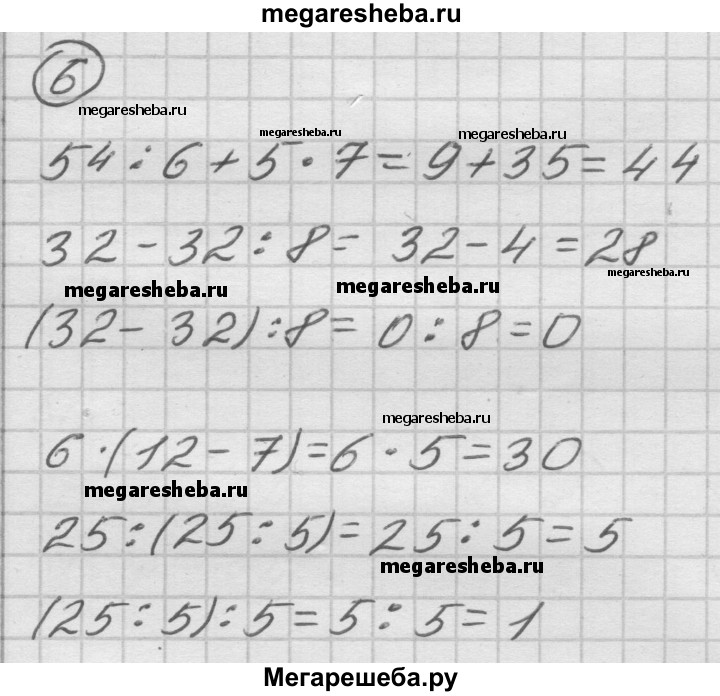 megaresheba.ru
6
megaresheba.ru
megaresheba.ru
megaresheba.ru
54:6+5·7=9+35=44
32-32:8= 32-4=28
megaresheba.ru
megaresheba.ru
megaresheba.ru
(32-32):8= 0:8=0
megaresheba.ru
6·(12-7)=6·5=30
megaresheba.ru
25:(25:5)=25:5=5
megaresheba.ru
(25:5):5=5:5=1
Мегарешеба.ру